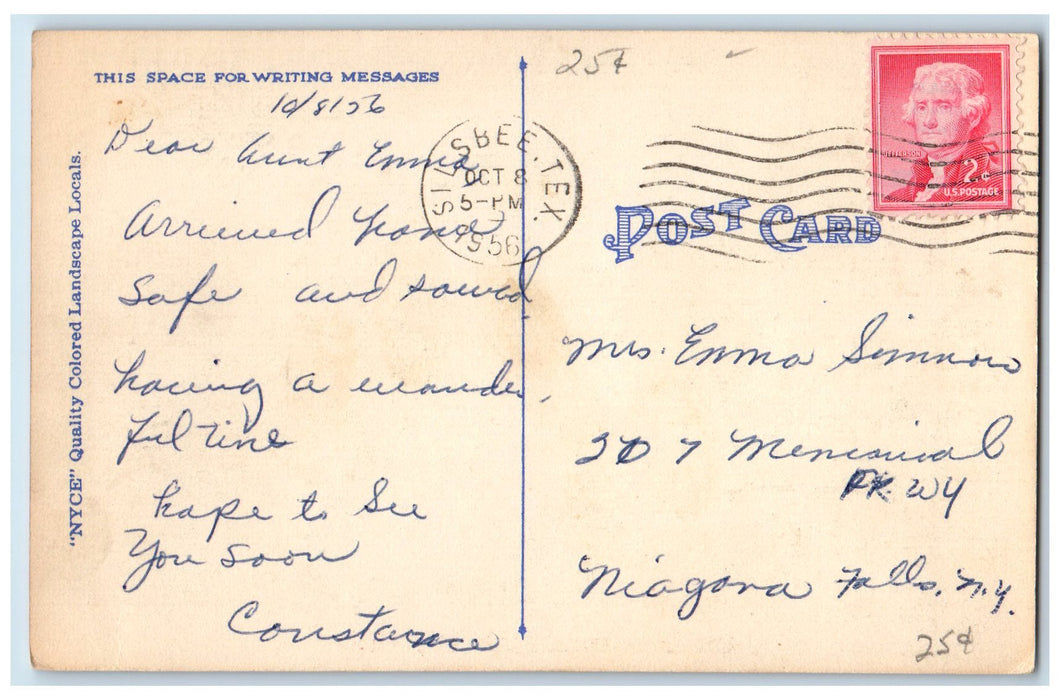 THIS SPACE FOR WRITING MESSAGES
10/8/56
Dear Aunt Emma
Arrived home
safe and sound
having a wounder
ful time
hope to See
You soon
Constance
"NYCE" Quality Colored Landscape Locals.
25¢
SILSBEE, TEX
OCT 8
5-PM
1956
JEFFERSON
2¢
U.S. POSTAGE
POST CARD
Mrs. Emma Simmons
307 Memorial
PK WY
Niagara Falls, N.Y.
25¢